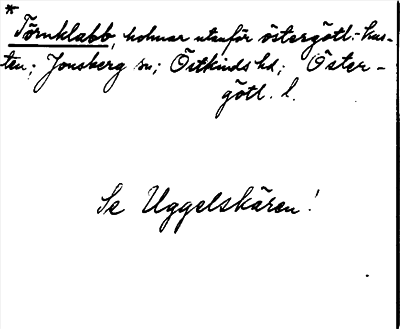 *
Törnklabb, holmar utanför östergötl. kus-
ten; Jonsberg sn; Östkinds hd; Öster-
götl. l.
Se Uggelskären!